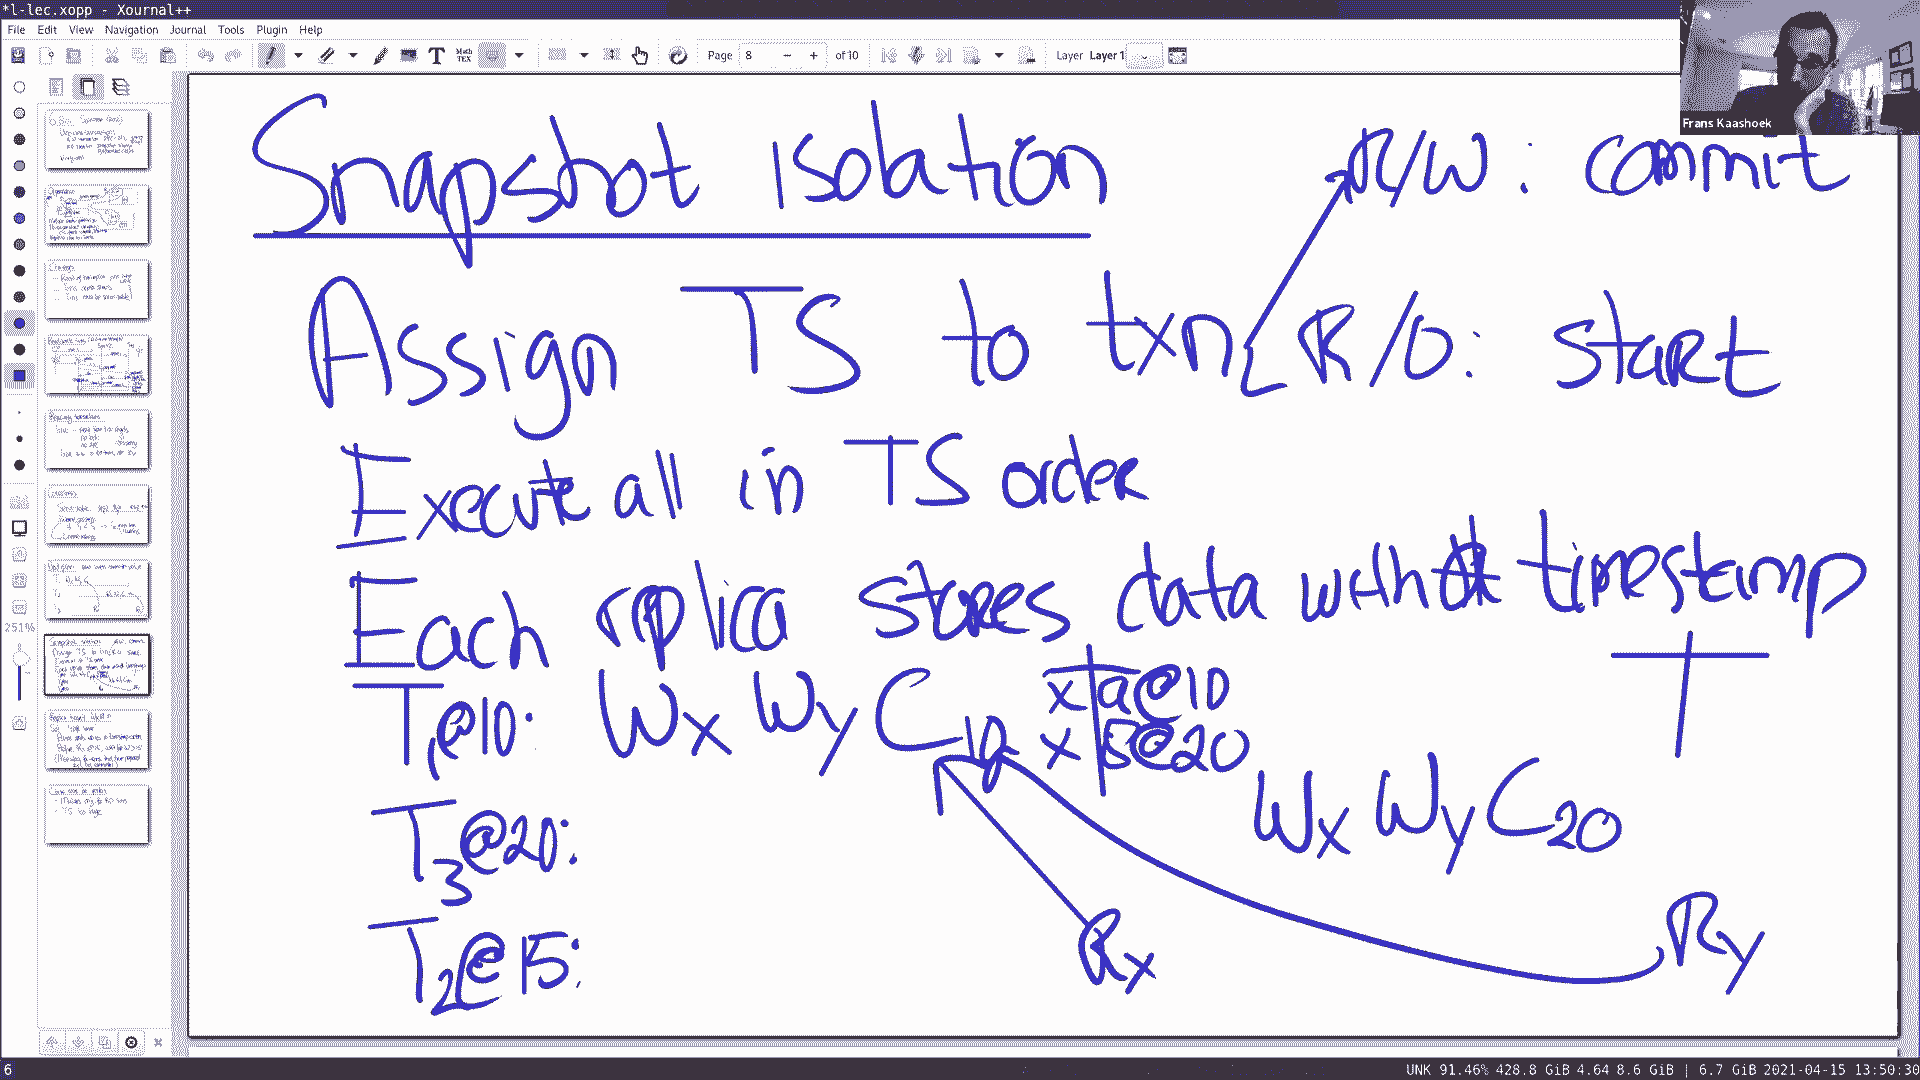 *l-lec.xopp - Xournal++
File Edit View Navigation Journal Tools Plugin Help
Page 8 of 10 Layer Layer 1
Frans Kaashoek
251%
Snapshot isolation
R/W: commit
Assign TS to txn R/O: start
Execute all in TS order
Each replica stores data with timestamp
T1@10: Wx Wy C10
x a@10
x b@20
T
T3@20: Wx Wy C20
T2@15: Rx Ry
6 UNK 91.46% 428.8 GiB 4.64 8.6 GiB | 6.7 GiB 2021-04-15 13:50:30